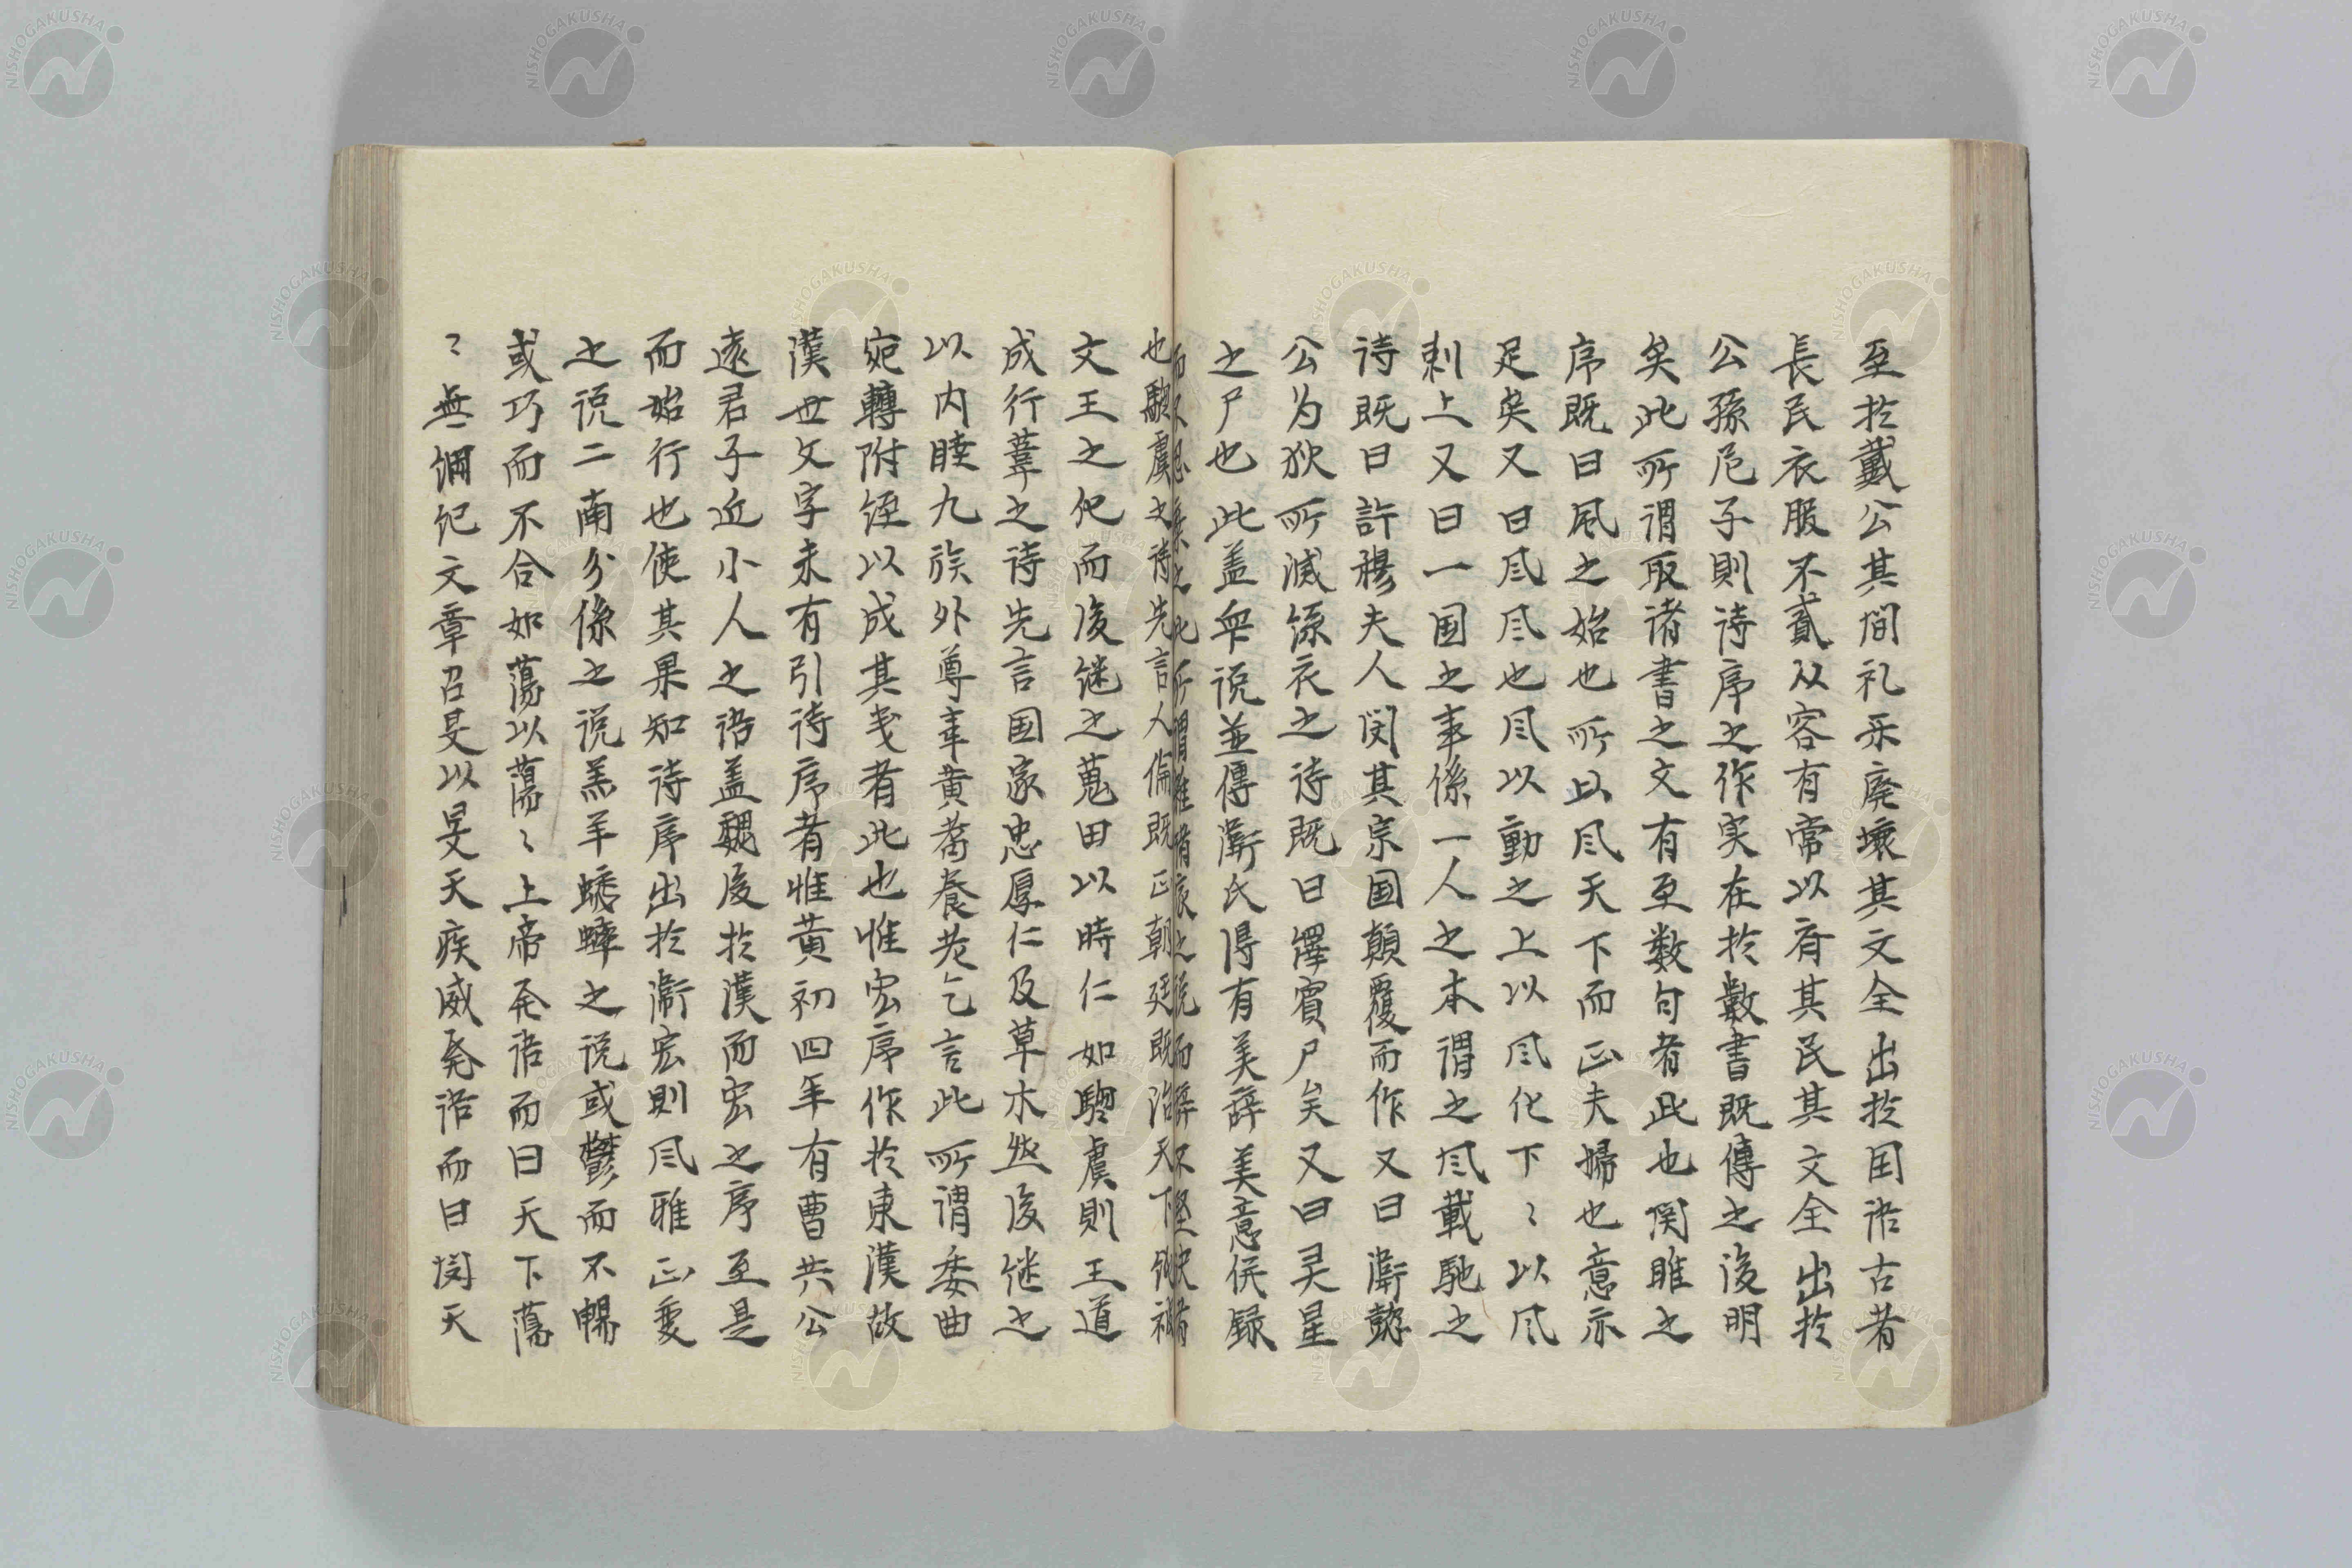 至於戴公其間礼乐廃壊其文全出於国语古者
長民衣服不貳从容有常以斉其民其文全出於
公孫尼子則诗序之作实在於數書既傳之後明
矣此所谓取诸書之文有至数句者此也関雎之
序既曰風之始也所以风天下而正夫婦也意示
足矣又曰风风也风以動之上以风化下〻以风
刺上又曰一国之事係一人之本谓之风載馳之
诗既曰許穆夫人閔其宗国顛覆而作又曰衞懿
公为狄所滅绦衣之诗既曰繹賓尸矣又曰灵星
之尸也此盖衆说並傳衞氏得有美辞美意併録
而不思棄之此所谓雖諸家之说而辞不堅决者
也騶虞之诗先言人倫既正朝廷既治天下纯被
文王之化而後継之蒐田以時仁如騶虞則王道
成行葦之诗先言国家忠厚仁及草木然後継之
以内睦九族外尊事黄耈養老乞言此所谓委曲
宛轉附經以成其义者此也惟宏序作於東漢故
漢世文字未有引诗序者惟黄初四年有曹共公
遠君子近小人之语盖魏後於漢而宏之序至是
而始行也使其果知诗序出於衞宏則风雅正变
之说二南分係之说羔羊蟋蟀之说或鬱而不暢
或巧而不合如蕩以蕩〻上帝発语而曰天下蕩
〻無綱纪文章召旻以旻天疾威発语而曰閔天